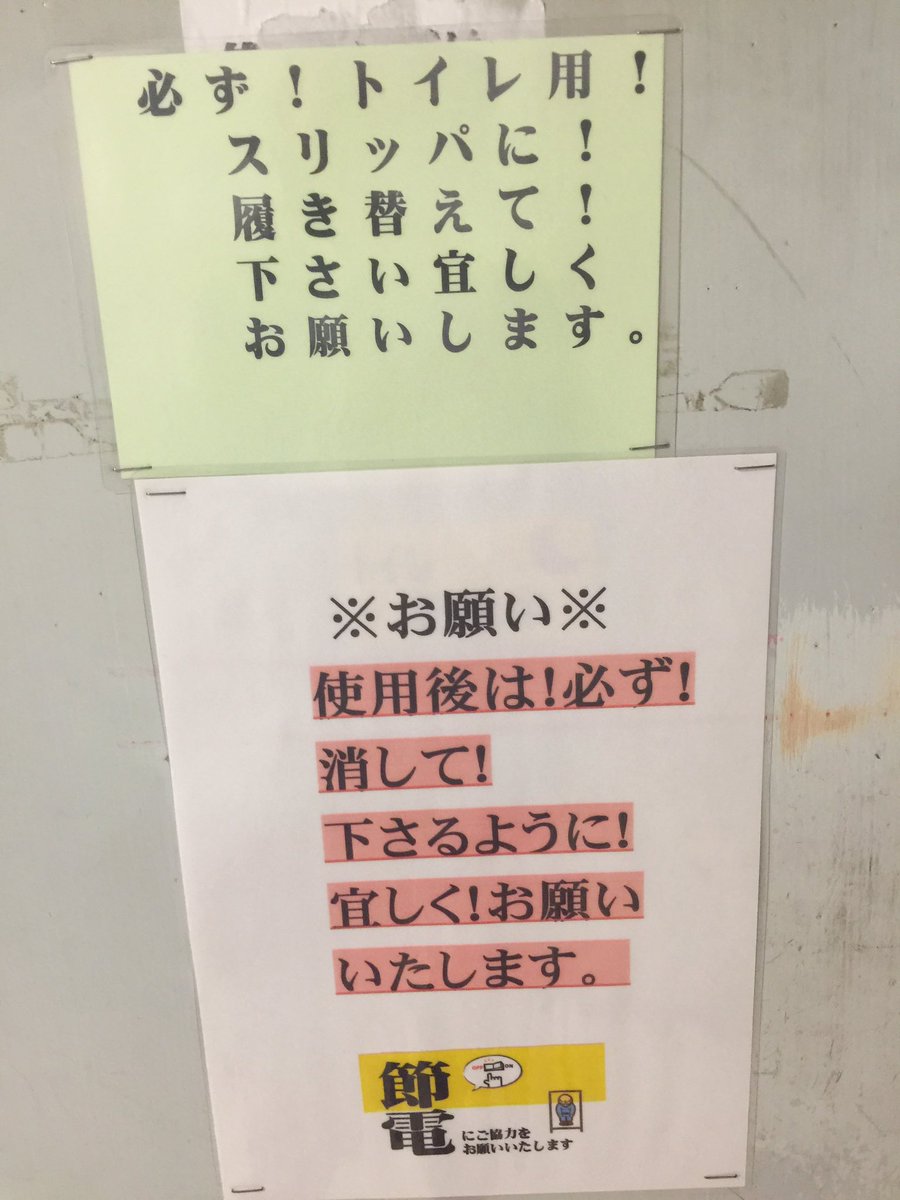 必ず！トイレ用！
スリッパに！
履き替えて！
下さい宜しく
お願いします。
※お願い※
使用後は!必ず!
消して!
下さるように!
宜しく!お願い
いたします。
OFF ON
節電
にご協力を
お願いいたします